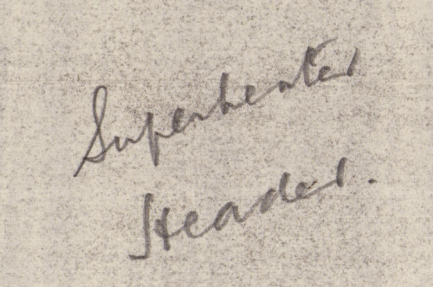 Superheater
Header.